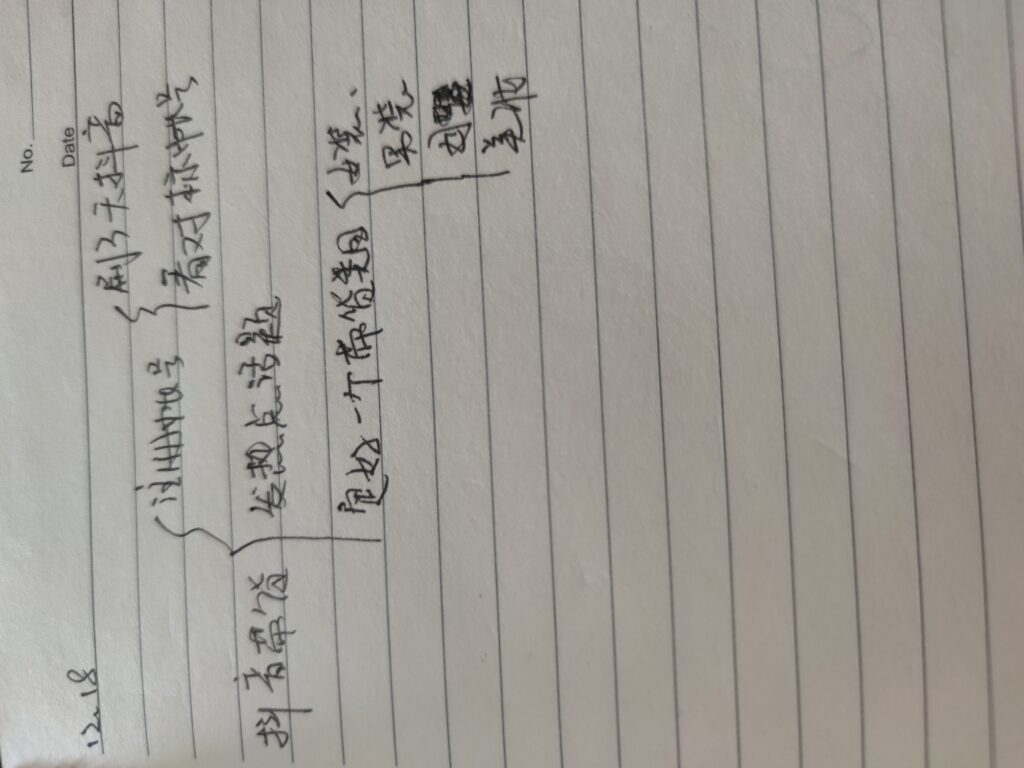 No.
Date
12.18
抖音带货
注册帐号
刷3天抖音
看对标帐号
发热点话题
定好一个带货类目
女装、
男装
母婴
美妆